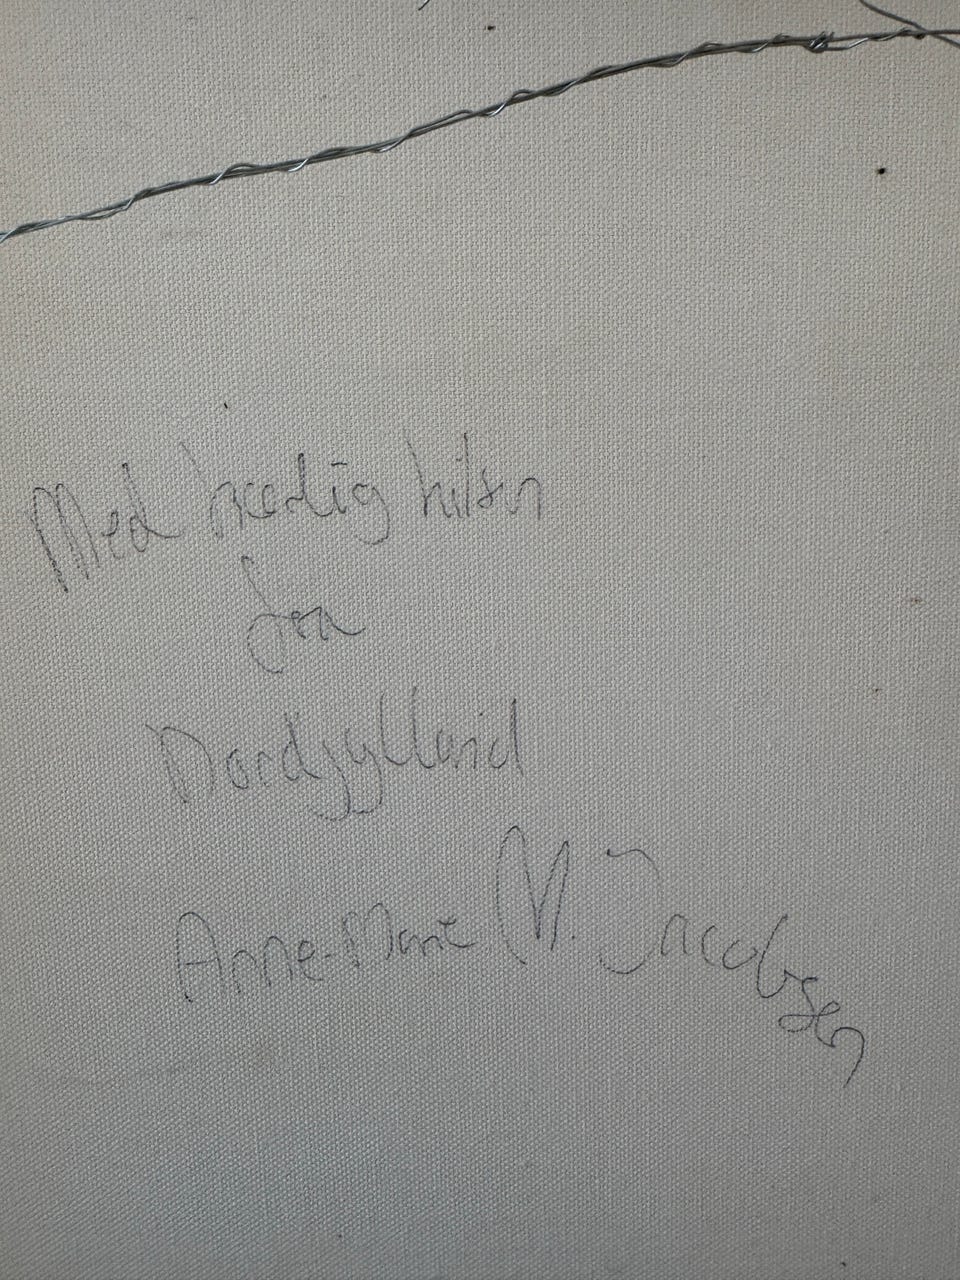 Med kærlig hilsen
fra
Nordjylland
Anne-Marie M. Jacobsen